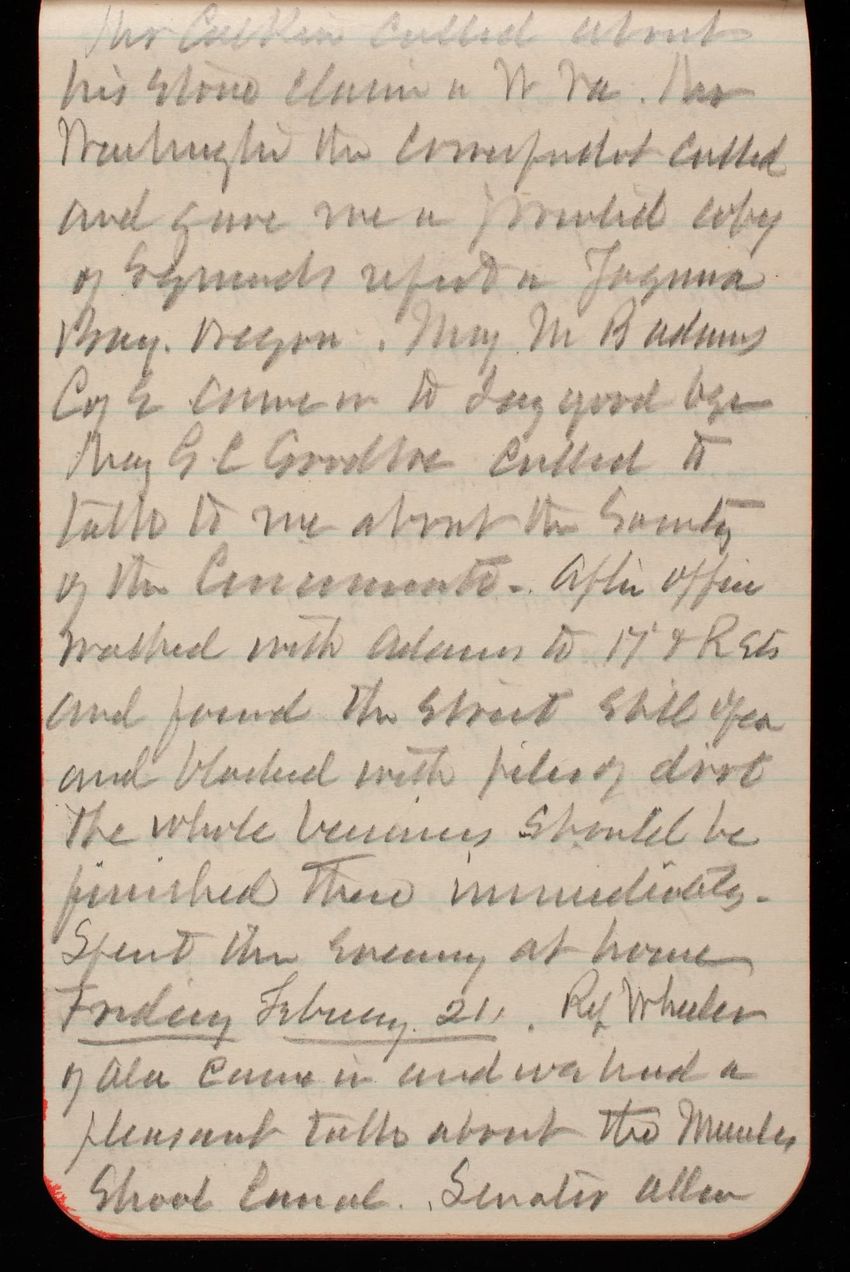 Mr Calkin called about
his stone claim in W Va. Mr
Washington the correspondent called
and gave me a printed copy
of Symonds report on Yaquina
Bay. Oregon. Maj M B Adams
C of E came in to say good bye
Maj G L called to
talk to me about the Society
of the Cincinnati. After office
walked with Adams to 17' & R Sts
and found the street still open
and blocked with piles of dirt
the whole business should be
finished there immediately.
Spent the evening at home
Friday February 21. Rep Wheeler
of Ala came in and we had a
pleasant talk about the Muscles
Shoal Canal. Senator Allen